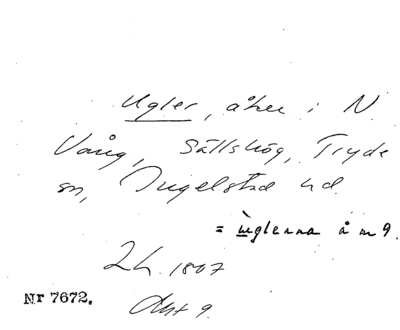 Ugler, åker i N.
Vång, Sällshög, Tryde
sn, Ingelstad hd.
= ùglerna å m 9.
Lh. 1807
Nr 7672.
Akt 9.